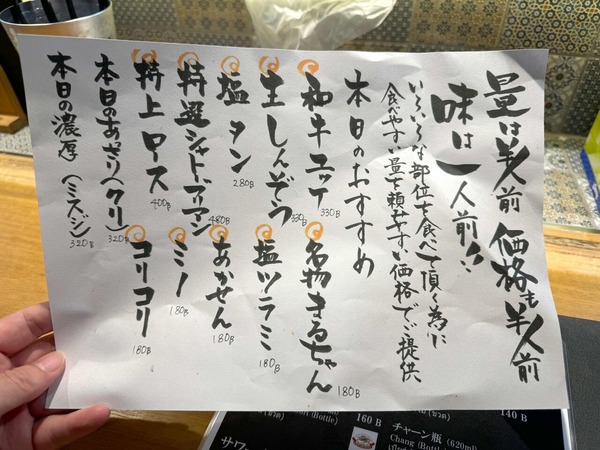 量は半人前 価格も半人前
味は一人前!!
いろいろな部位を食べて頂く為に
食べやすい量を頼みやすい価格でご提供
本日のおすすめ
和牛ユッケ 330B
名物まるちゃん 180B
生しんぞう 330B
塩ツラミ 180B
塩タン 280B
あかせん 180B
特選シャトーブリアン 480B
ミノ 180B
特上ロース 400B
コリコリ 180B
本日のあっさり(クリ) 320B
本日の濃厚(ミスジ) 320B
(Bottle) 160 B
チャーン瓶 (620ml)
Chang (Bottle)
140 B
サワー